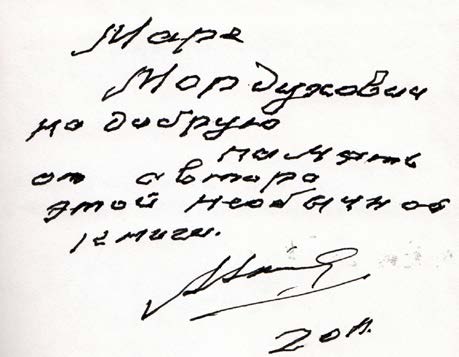 Маре
Мордухович
на добрую
память
от автора
этой необычной
книги.
2011.